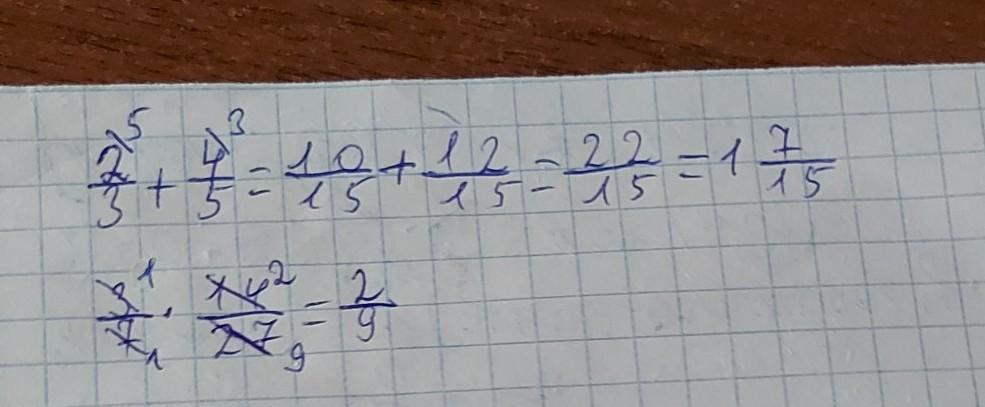 2/3 ⁵ + 4/5 ³ = 10/15 + 12/15 = 22/15 = 1 7/15
3/7 ¹₁ · 14/27 ²₉ = 2/9